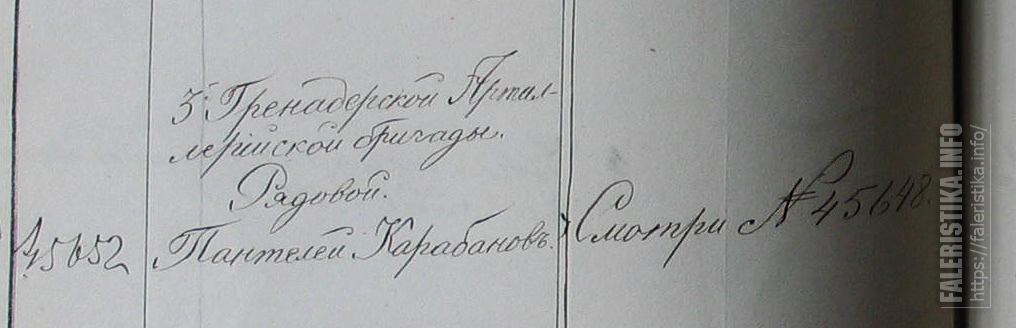 3й Гренадерской Артил-
лерийской бригады.
Рядовой.
45652 Пантелей Карабановъ. Смотри № 45648.
FALERISTIKA.INFO
https://faleristika.info/